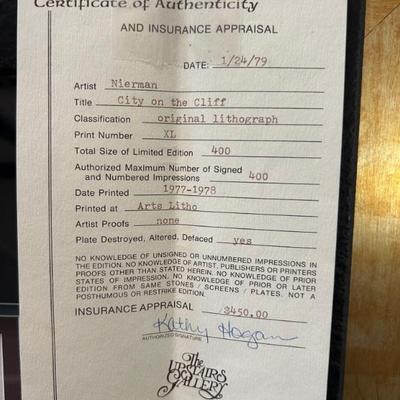 Certificate of Authenticity
AND INSURANCE APPRAISAL
DATE: 1/24/79
Artist Nierman
Title City on the Cliff
Classification original lithograph
Print Number XL
Total Size of Limited Edition 400
Authorized Maximum Number of Signed
and Numbered Impressions 400
Date Printed 1977-1978
Printed at Arts Litho
Artist Proofs none
Plate Destroyed, Altered, Defaced yes
NO KNOWLEDGE OF UNSIGNED OR UNNUMBERED IMPRESSIONS IN
THE EDITION. NO KNOWLEDGE OF ARTIST, PUBLISHERS OR PRINTERS
PROOFS OTHER THAN STATED HEREIN. NO KNOWLEDGE OF PRIOR
STATES OF IMPRESSION. NO KNOWLEDGE OF PRIOR OR LATER
EDITION FROM SAME STONES / SCREENS / PLATES. NOT A
POSTHUMOUS OR RESTRIKE EDITION.
INSURANCE APPRAISAL $450.00
Kathy Hogan
AUTHORIZED SIGNATURE
The
UPSTAIRS
GALLERY